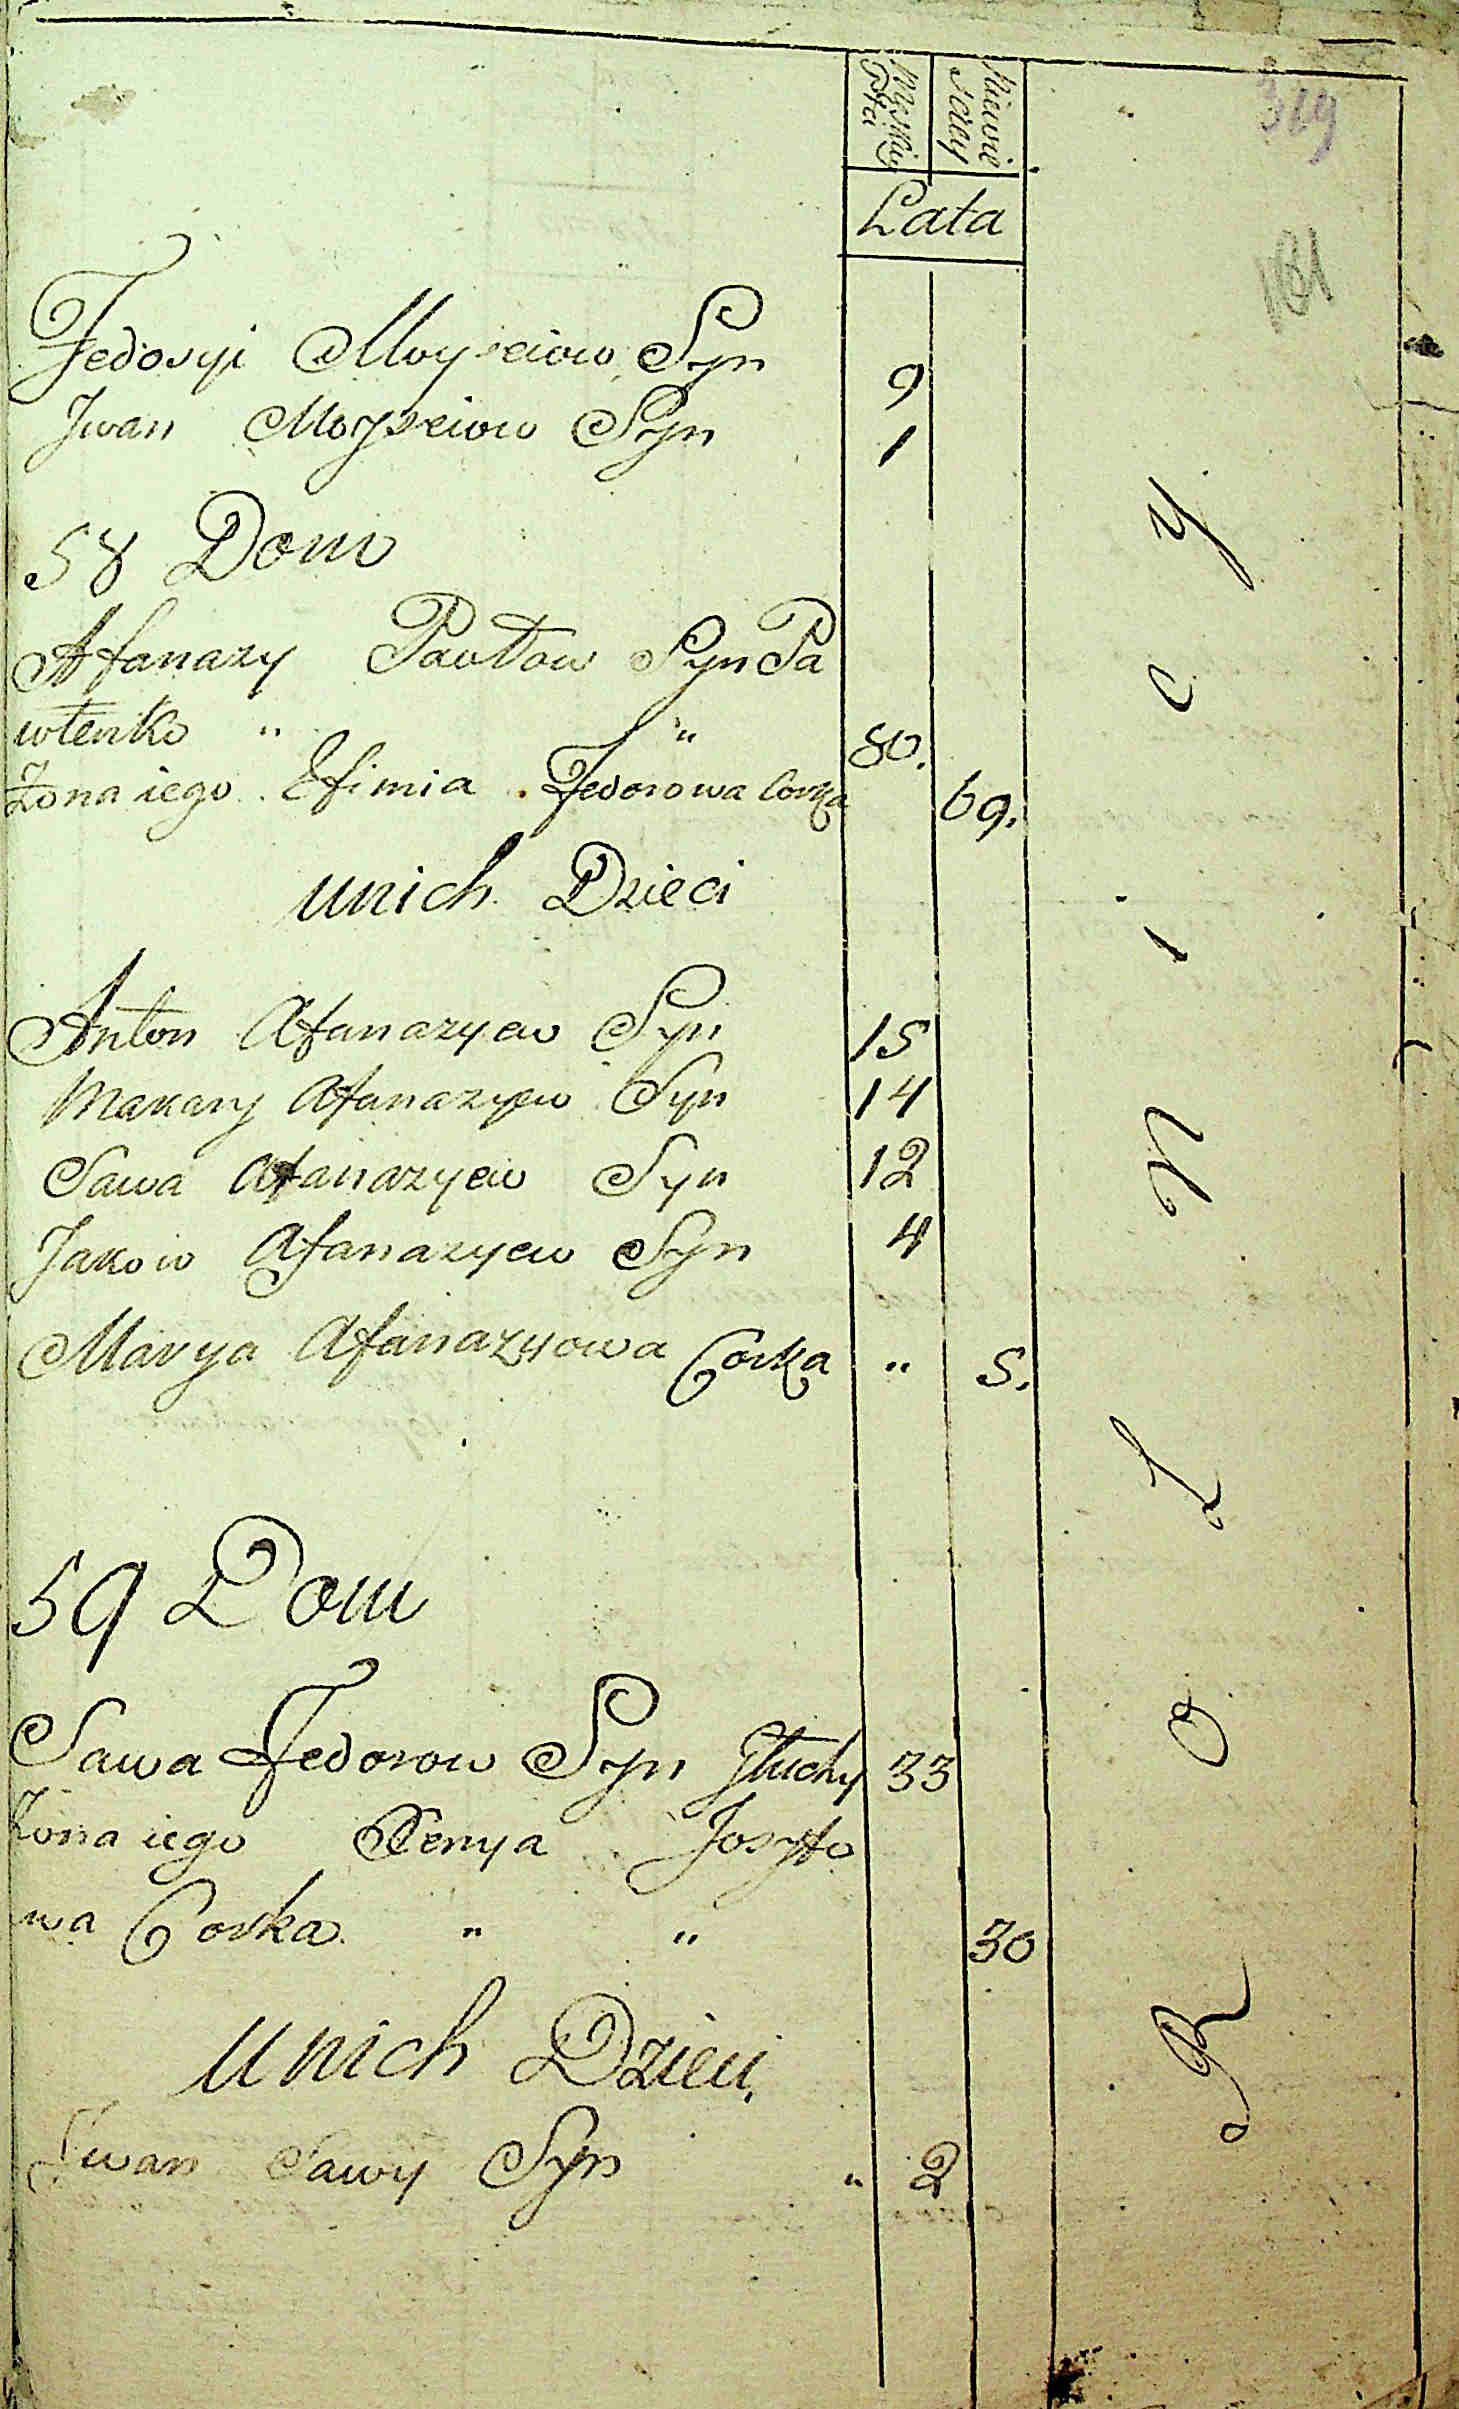 Męskiey Płci
Niewie sciey
Lata
319
161
Fedosyi Moyseiow Syn 9
Jwan Moyseiow Syn 1
58 Dom
Afanazy Pawłow Syn Pa
włenko " " 80.
Żona iego Efimia Fedorowa Corka 69.
unich Dzieci
Anton Afanazyew Syn 15
Makary Afanazyew Syn 14
Sawa Afanazyew Syn 12
Jakow Afanazyew Syn 4
Marya Afanazyowa Corka " 5.
59 Dom
Sawa Fedorow Syn Głuchy 33
Żona iego Xenya Josyfo
wa Corka " " 30
unich Dzieci
Jwan Sawy Syn " 2
Rolnicy